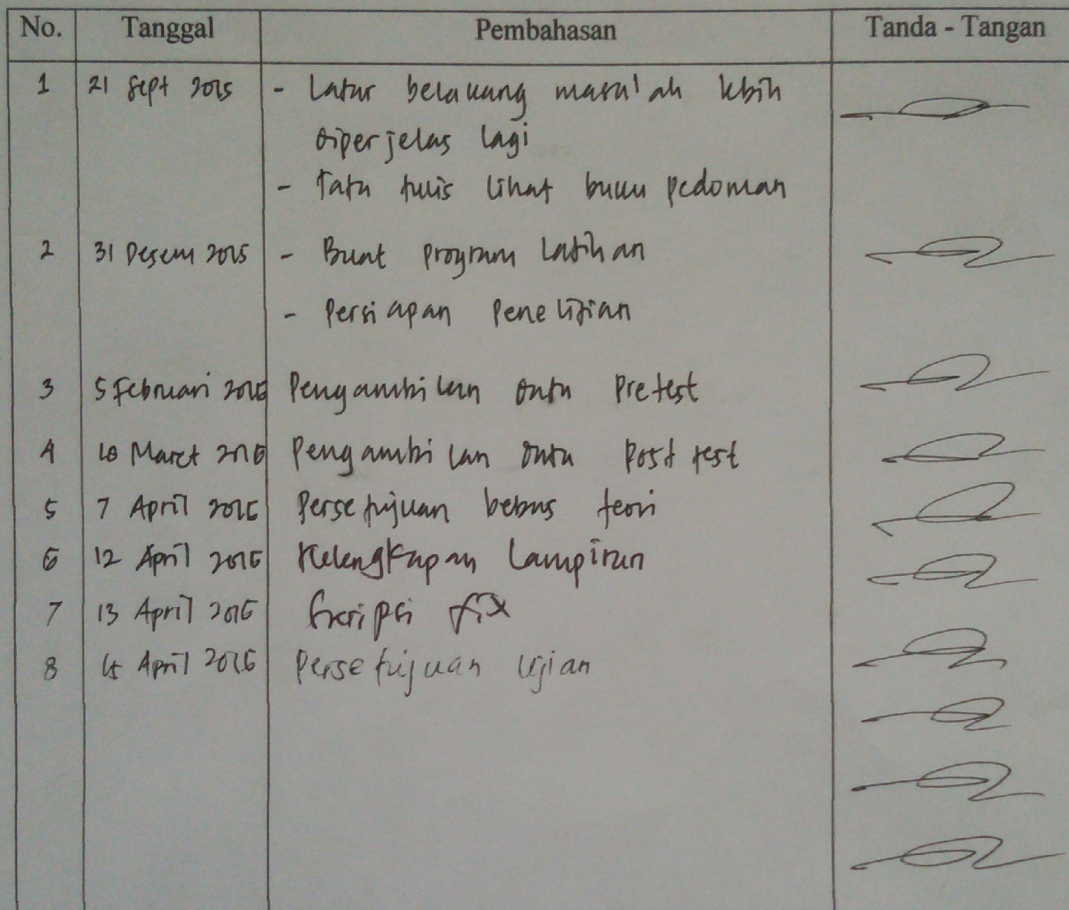 No. Tanggal Pembahasan Tanda - Tangan
1 21 Sept 2015 - Latar belakang masalah lebih
diperjelas lagi
- Tata tulis lihat buku pedoman
2 31 Desem 2015 - Buat program Latihan
- Persiapan Penelitian
3 5 Februari 2016 Pengambilan data Pretest
4 10 Maret 2016 Pengambilan data Post test
5 7 April 2016 Persetujuan bebas teori
6 12 April 2016 Kelengkapan Lampiran
7 13 April 2016 Skripsi fix
8 April 2016 Persetujuan Ujian